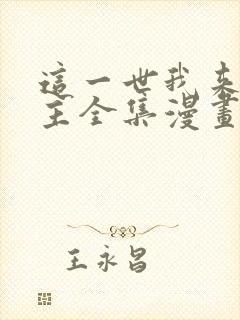 這一世我來
主全集漫畫
王永昌